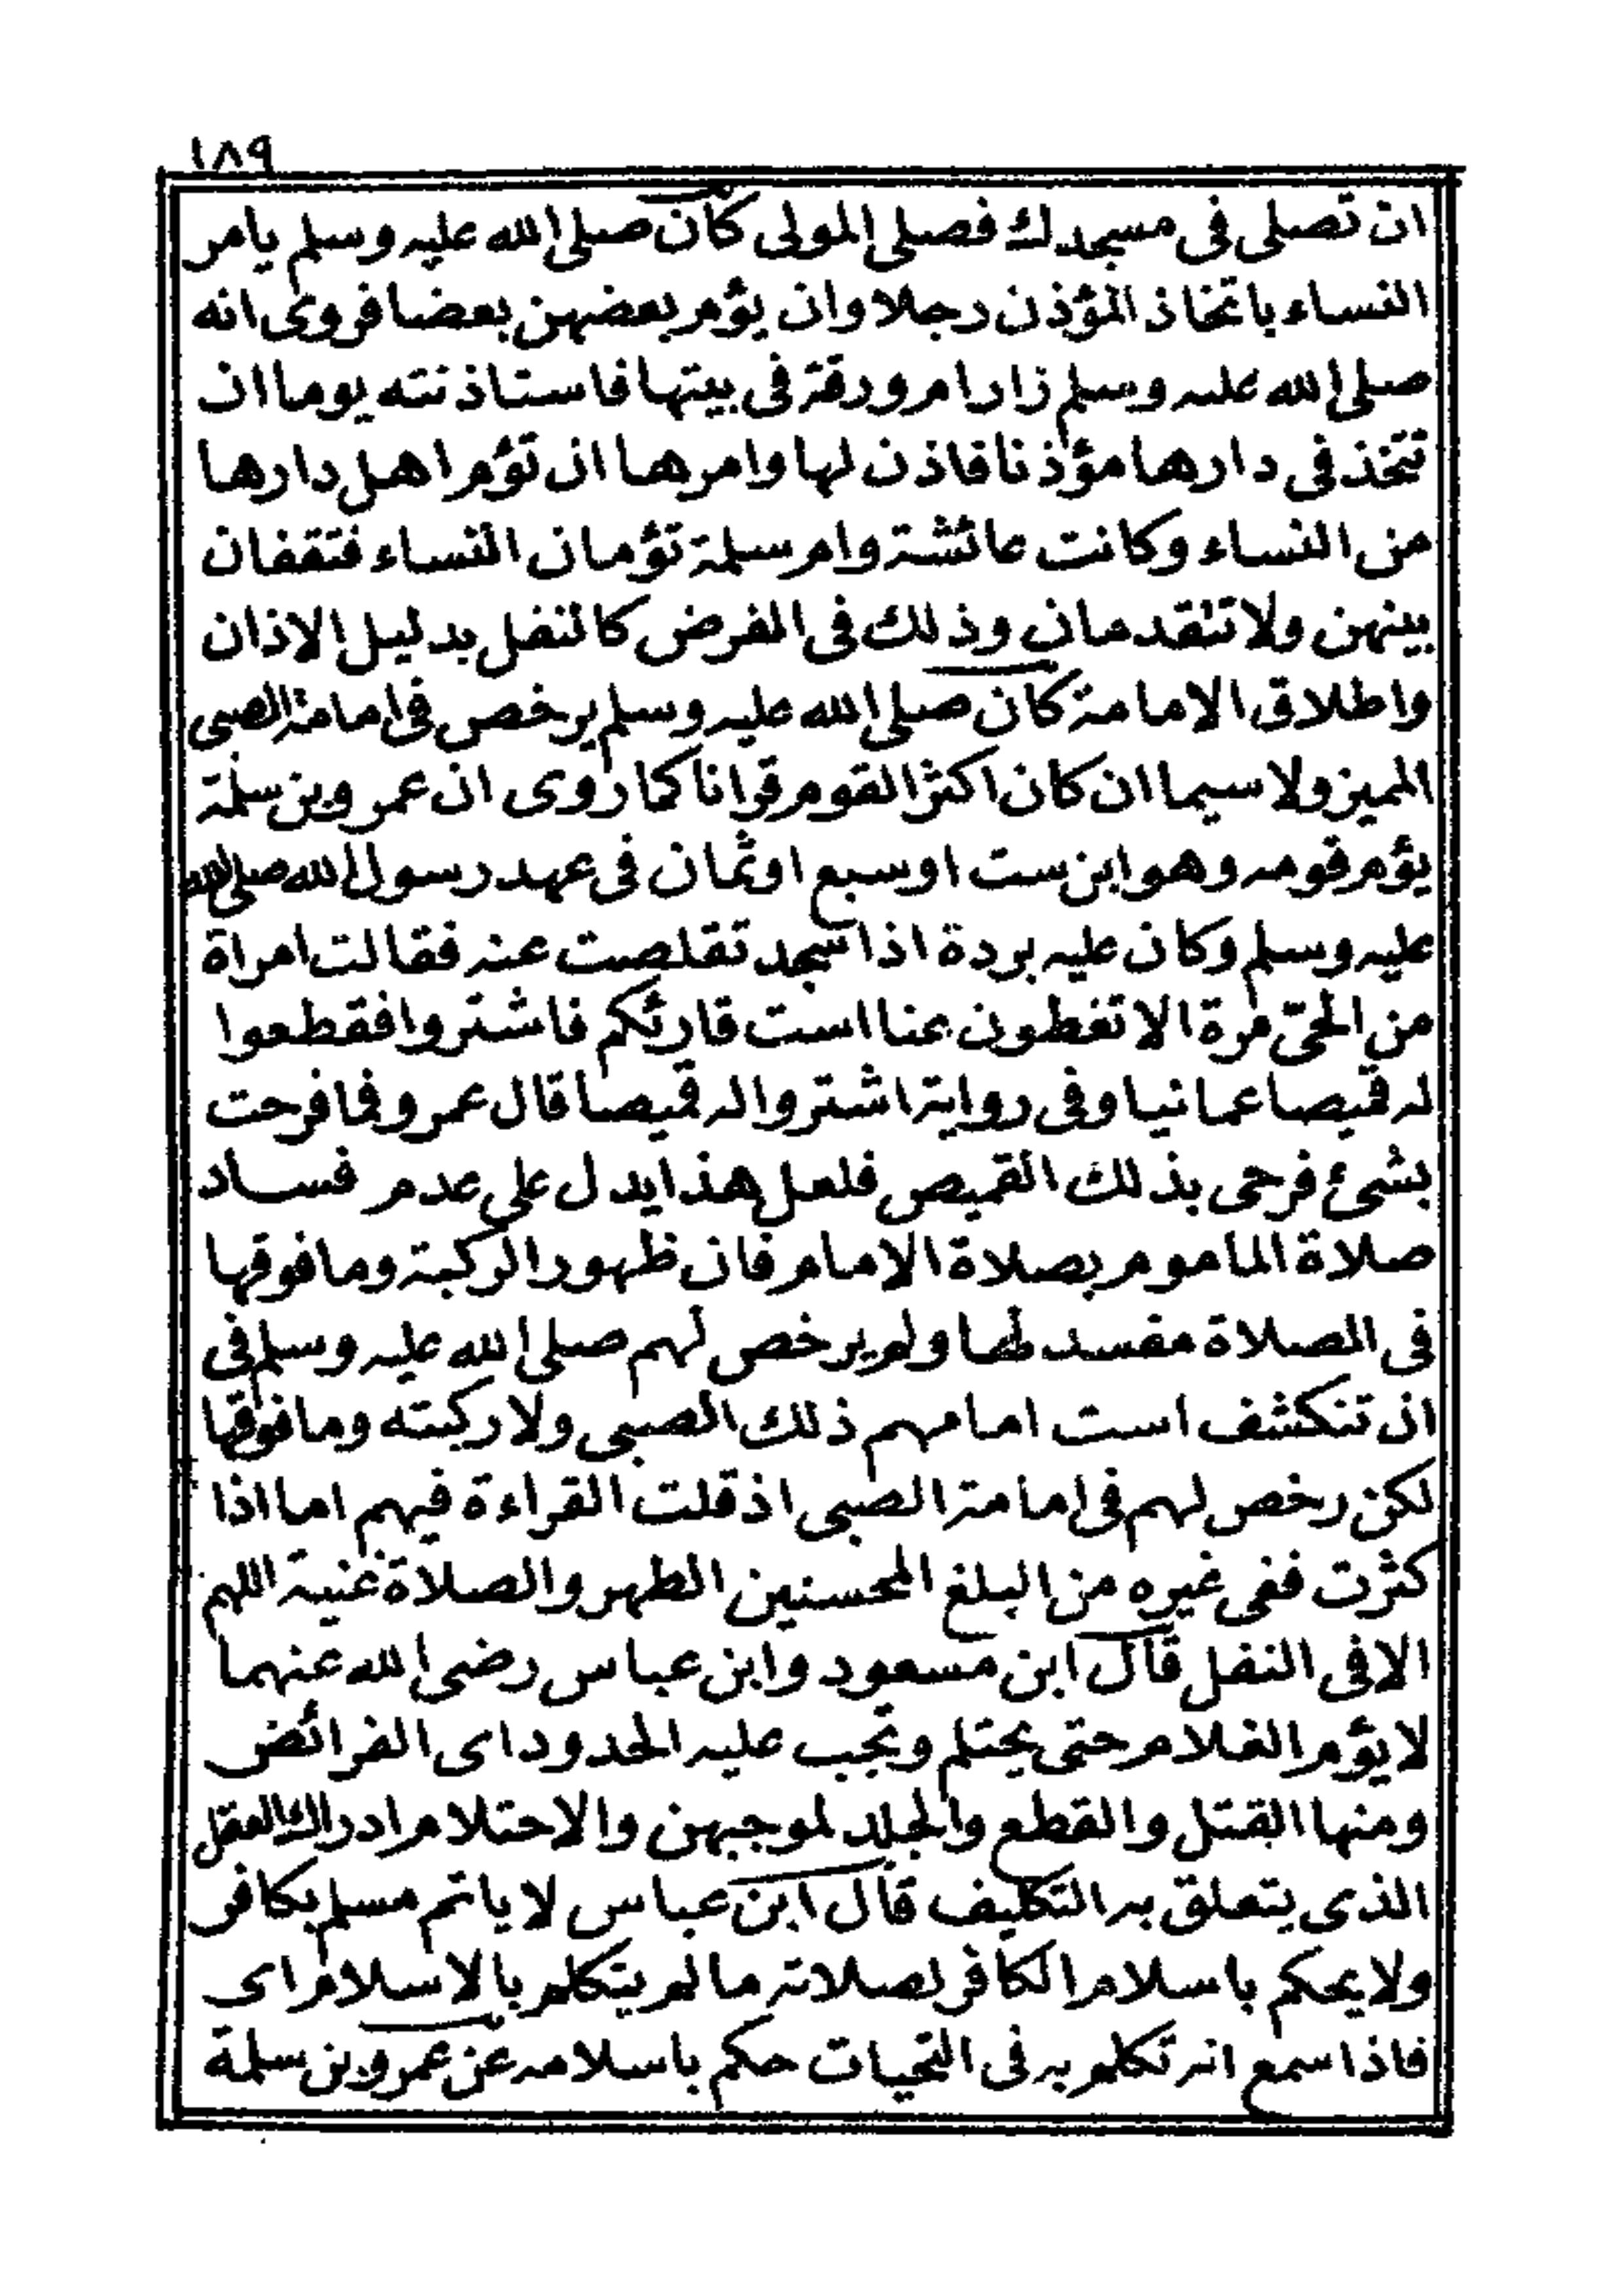 ١٨٩
ان تصلى فى مسجدك فصلى المولى كان صلى الله عليه وسلم يامر
النساء باتخاذ المؤذن رجلا وان يؤم بعضهن بعضا فروى انه
صلى الله عليه وسلم زار ام ورقة فى بيتها فاستاذنته يوما ان
تتخذ فى دارها مؤذنا فاذن لها وامرها ان تؤم اهل دارها
من النساء وكانت عائشة وام سلمة تؤمان النساء فتقفان
بينهن ولا تتقدمان وذلك فى الفرض كالنفل بدليل الاذان
واطلاق الامامة كان صلى الله عليه وسلم يرخص فى امامة الصبى
المميز ولا سيما ان كان اكثر القوم قرانا كما روى ان عمرو بن سلمة
يؤم قومه وهو ابن ست او سبع او ثمان فى عهد رسول الله صلى الله
عليه وسلم وكان عليه بردة اذا سجد تقلصت عنه فقالت امراة
من الحىّ مرة الا تغطون عنا است قارئكم فاشتروا فقطعوا
له قميصا عمانيا وفى رواية اشتروا له قميصا قال عمرو فما فرحت
بشئ فرحى بذلك القميص فلعل هذا يدل على عدم فساد
صلاة الماموم بصلاة الامام فان ظهور الركبة وما فوقها
فى الصلاة مفسد لها ولم يرخص لهم صلى الله عليه وسلم فى
ان تنكشف است امامهم ذلك الصبى ولا ركبته وما فوقها
لكن رخص لهم فى امامة الصبى اذ قلت القراءة فيهم اما اذا
كثرت ففى غيره من البلغ المحسنين الطهر والصلاة غنية اللهم
الا فى النفل قال ابن مسعود وابن عباس رضى الله عنهما
لا يؤم الغلام حتى يحتلم وتجب عليه الحدود اى الفرائض
ومنها القتل والقطع والجلد لموجبهن والاحتلام ادراك العقل
الذى يتعلق به التكليف قال ابن عباس لا ياتم مسلم بكافر
ولا يحكم باسلام الكافر لصلاته ما لم يتكلم بالاسلام اى
فاذا سمع انه تكلم به فى التحيات حكم باسلامه عن عمرو بن سلمة